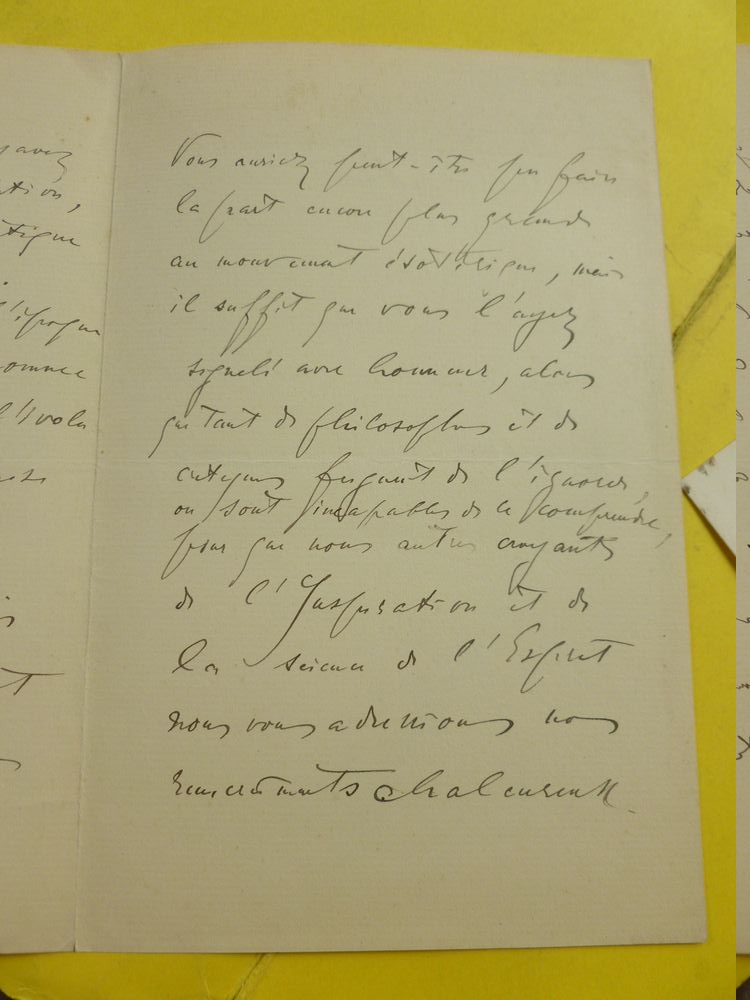 avez
ation,
tique
l'époque
l'Évola
Vous auriez peut-être pu faire
la part encore plus grande
au mouvement ésotérique, mais
il suffit que vous l'ayez
signalé avec honneur, alors
que tant de philosophes et de
feignent de l'ignorer,
ou sont incapables de le comprendre,
pour que nous autres croyants
de l'Inspiration et de
la science de l'Esprit
nous vous adressions nos
remerciements chaleureux.